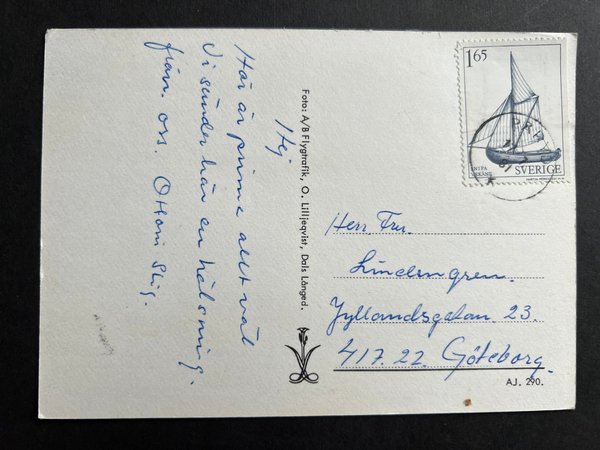 Hej
Här är prima allt väl
Vi sänder här en hälsning.
från. oss.
Foto: A/B Flygtrafik, O. Lilljeqvist, Dals Långed.
1 65
SVERIGE
Herr. Fru.
Lindengren.
Jyllandsgatan. 23.
417.22. Göteborg.
AJ. 290.